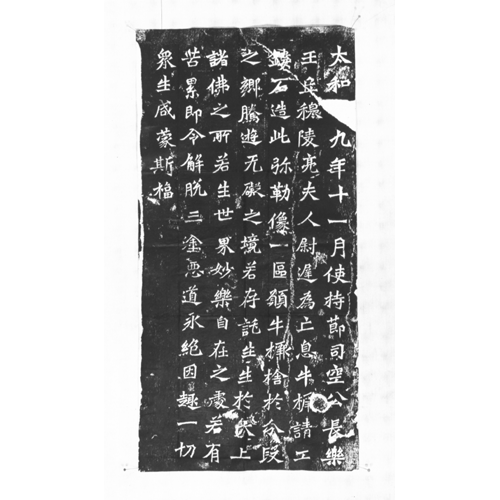 太和九年十一月使持節司空公長樂
王丘穆陵亮夫人尉遲為亡息牛橛請工
鏤石造此弥勒像一區願牛橛捨於分段
之鄉騰遊无礙之境若存託生生於天上
諸佛之所若生世界妙樂自在之處若有
苦累即令解脫三塗惡道永絕因趣一切
衆生咸蒙斯福